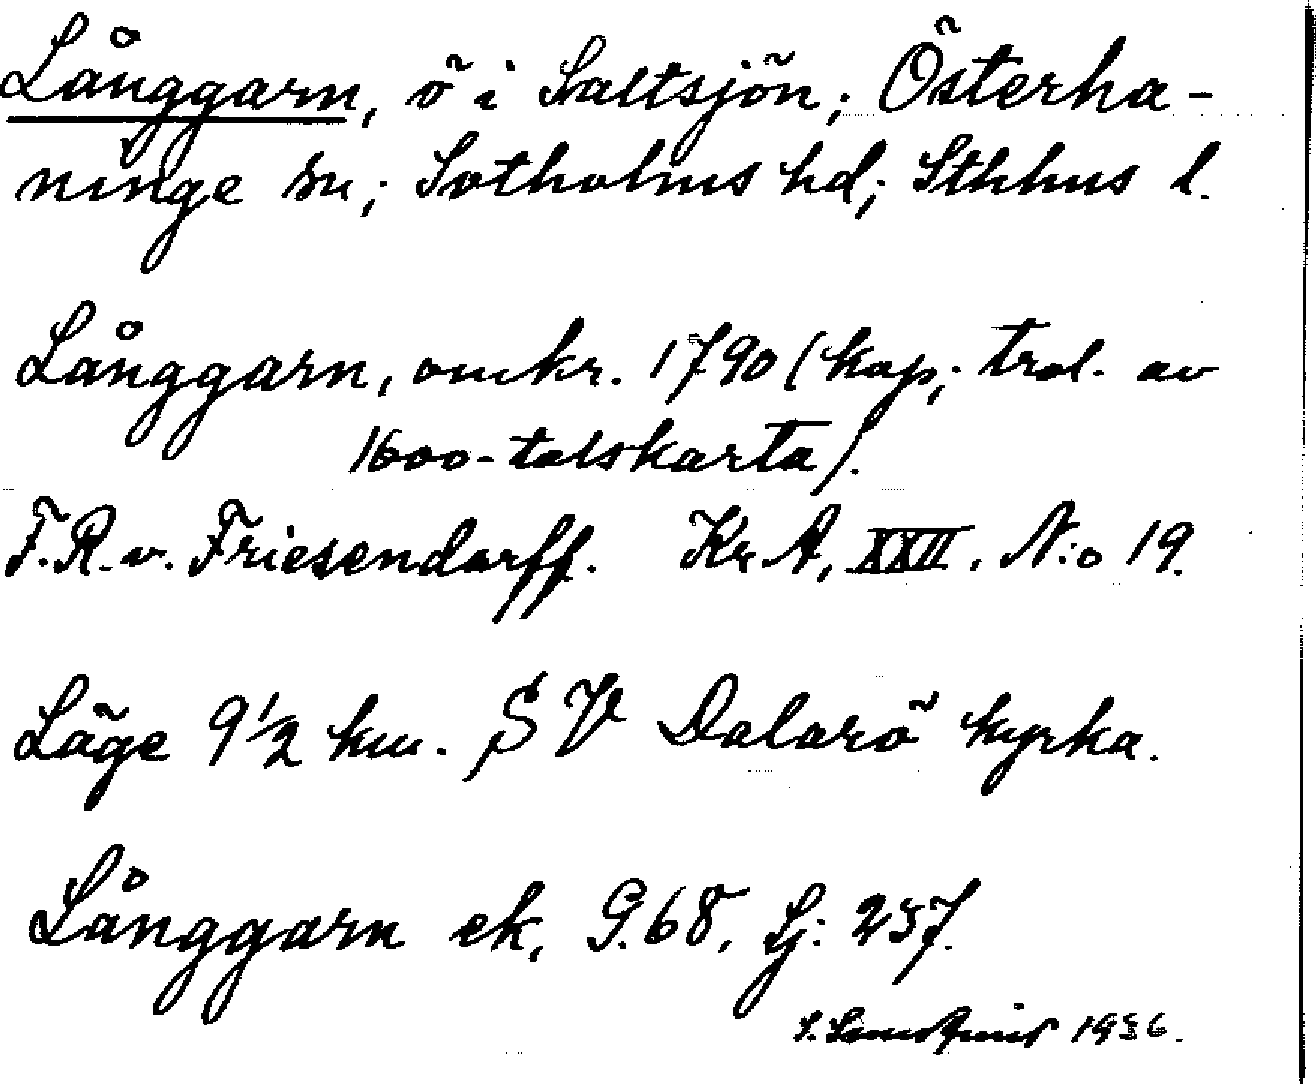 Långgarn, ö i Saltsjön; Österha-
ninge sn; Sotholms hd; Sthlms l.
Långgarn, omkr. 1790 (kop; trol. av
1600-talskarta).
F.R. v. Friesendorff. Kr.A, XXII. N:o 19.
Läge 9 1/2 km. SV Dalarö kyrka.
Långgarn ek, G.68. Sj: 257.
1936.